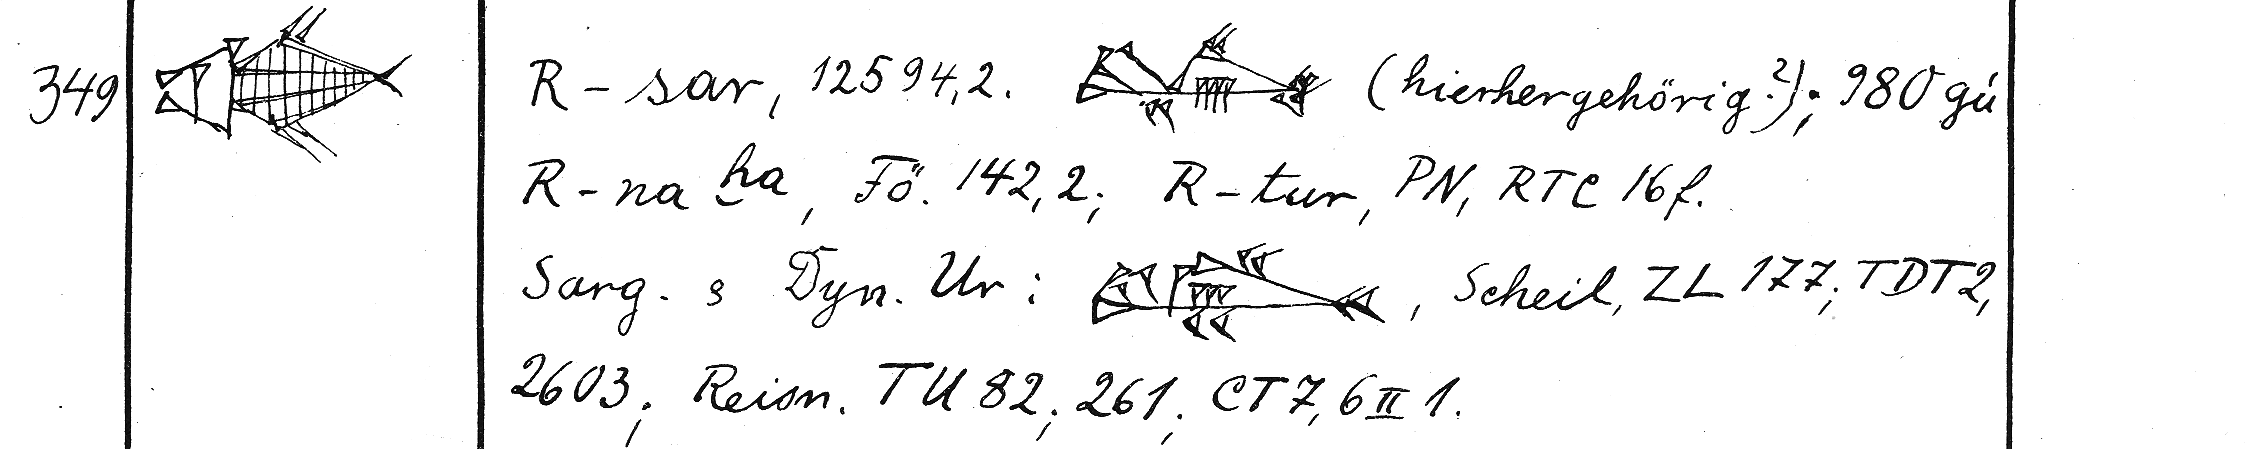 349 R - sar, 12594,2. (hierhergehörig?); 980 gú
R - na ḫa, Fö. 142,2; R - tur, PN, RTC 16 f.
Sarg. & Dyn. Ur: , Scheil, ZL 177; TDT2,
2603; Reisn. TU 82; 261; CT 7, 6 II 1.